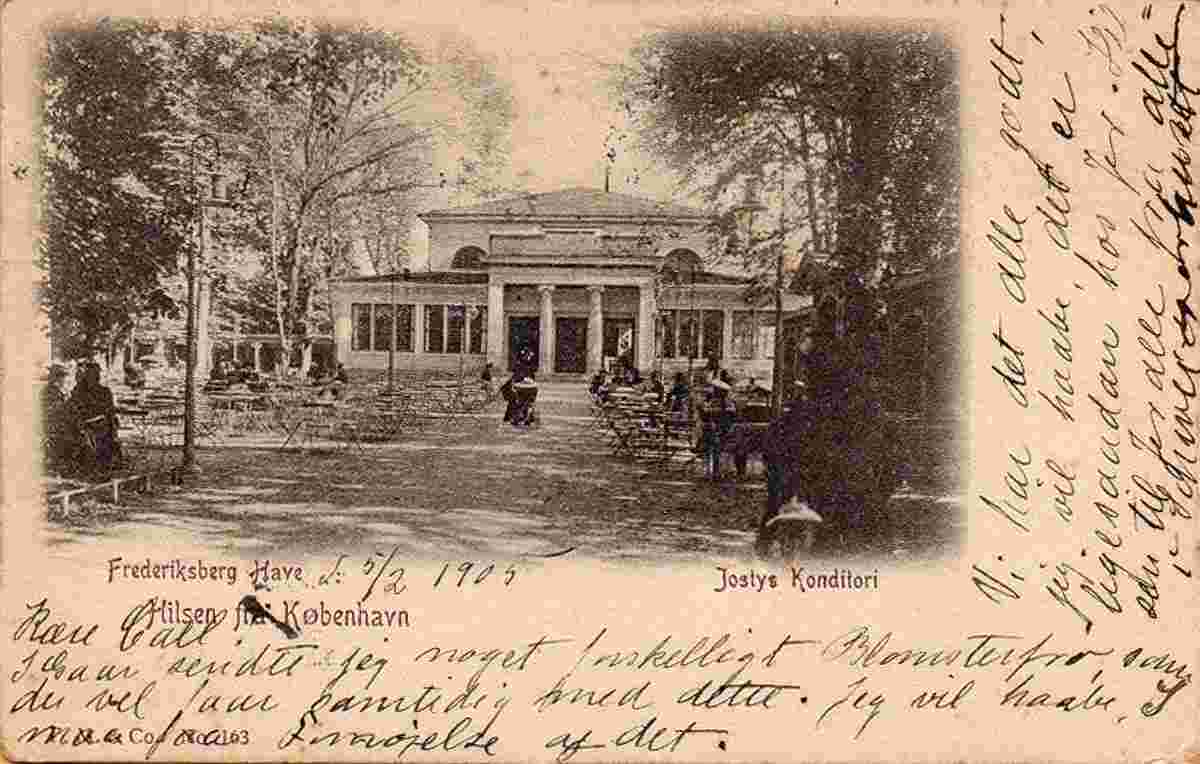 Frederiksberg Have. d: 5/2 1905
Jostys Konditori
Hilsen fra København
Kære Call.
I Gaar sendte jeg noget forskelligt Blomsterfrø, som
du vel faar samtidig med dette. Jeg vil haabe, I
maa faa Fornøjelse af det.
& Co. No. 163
Vi har det alle godt,
jeg vil haabe, det er
ligesaadan hos Jer. Hil=
sen til Jer alle fra alle
i